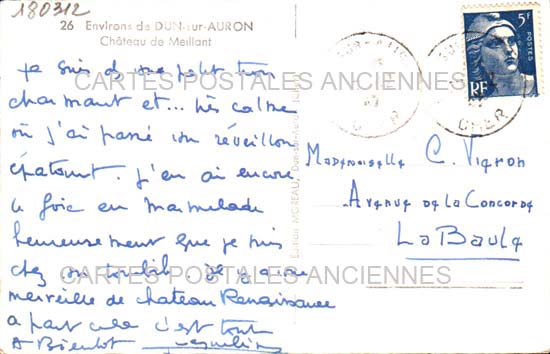 180312
26 Environs de DUN-sur-AURON
Château de Meillant
Je suis d une petit trou
charmant et... très calme
où j'ai passé un réveillon
épatant. J'en ai encore
le foie en marmelade
heureusement que je suis
chez un toubib. Il y a une
merveille de chateau Renaissance
a part cela c'est tout
A Bientot
CARTES POSTALES ANCIENNES
CARTES POSTALES ANCIENNES
Edition MOREAU, Dun-sur-Auron
SUR-AUR
CHER
5F
POSTES
RF
Mademoiselle C. Vigron
Avenue de la Concorde
La Baule